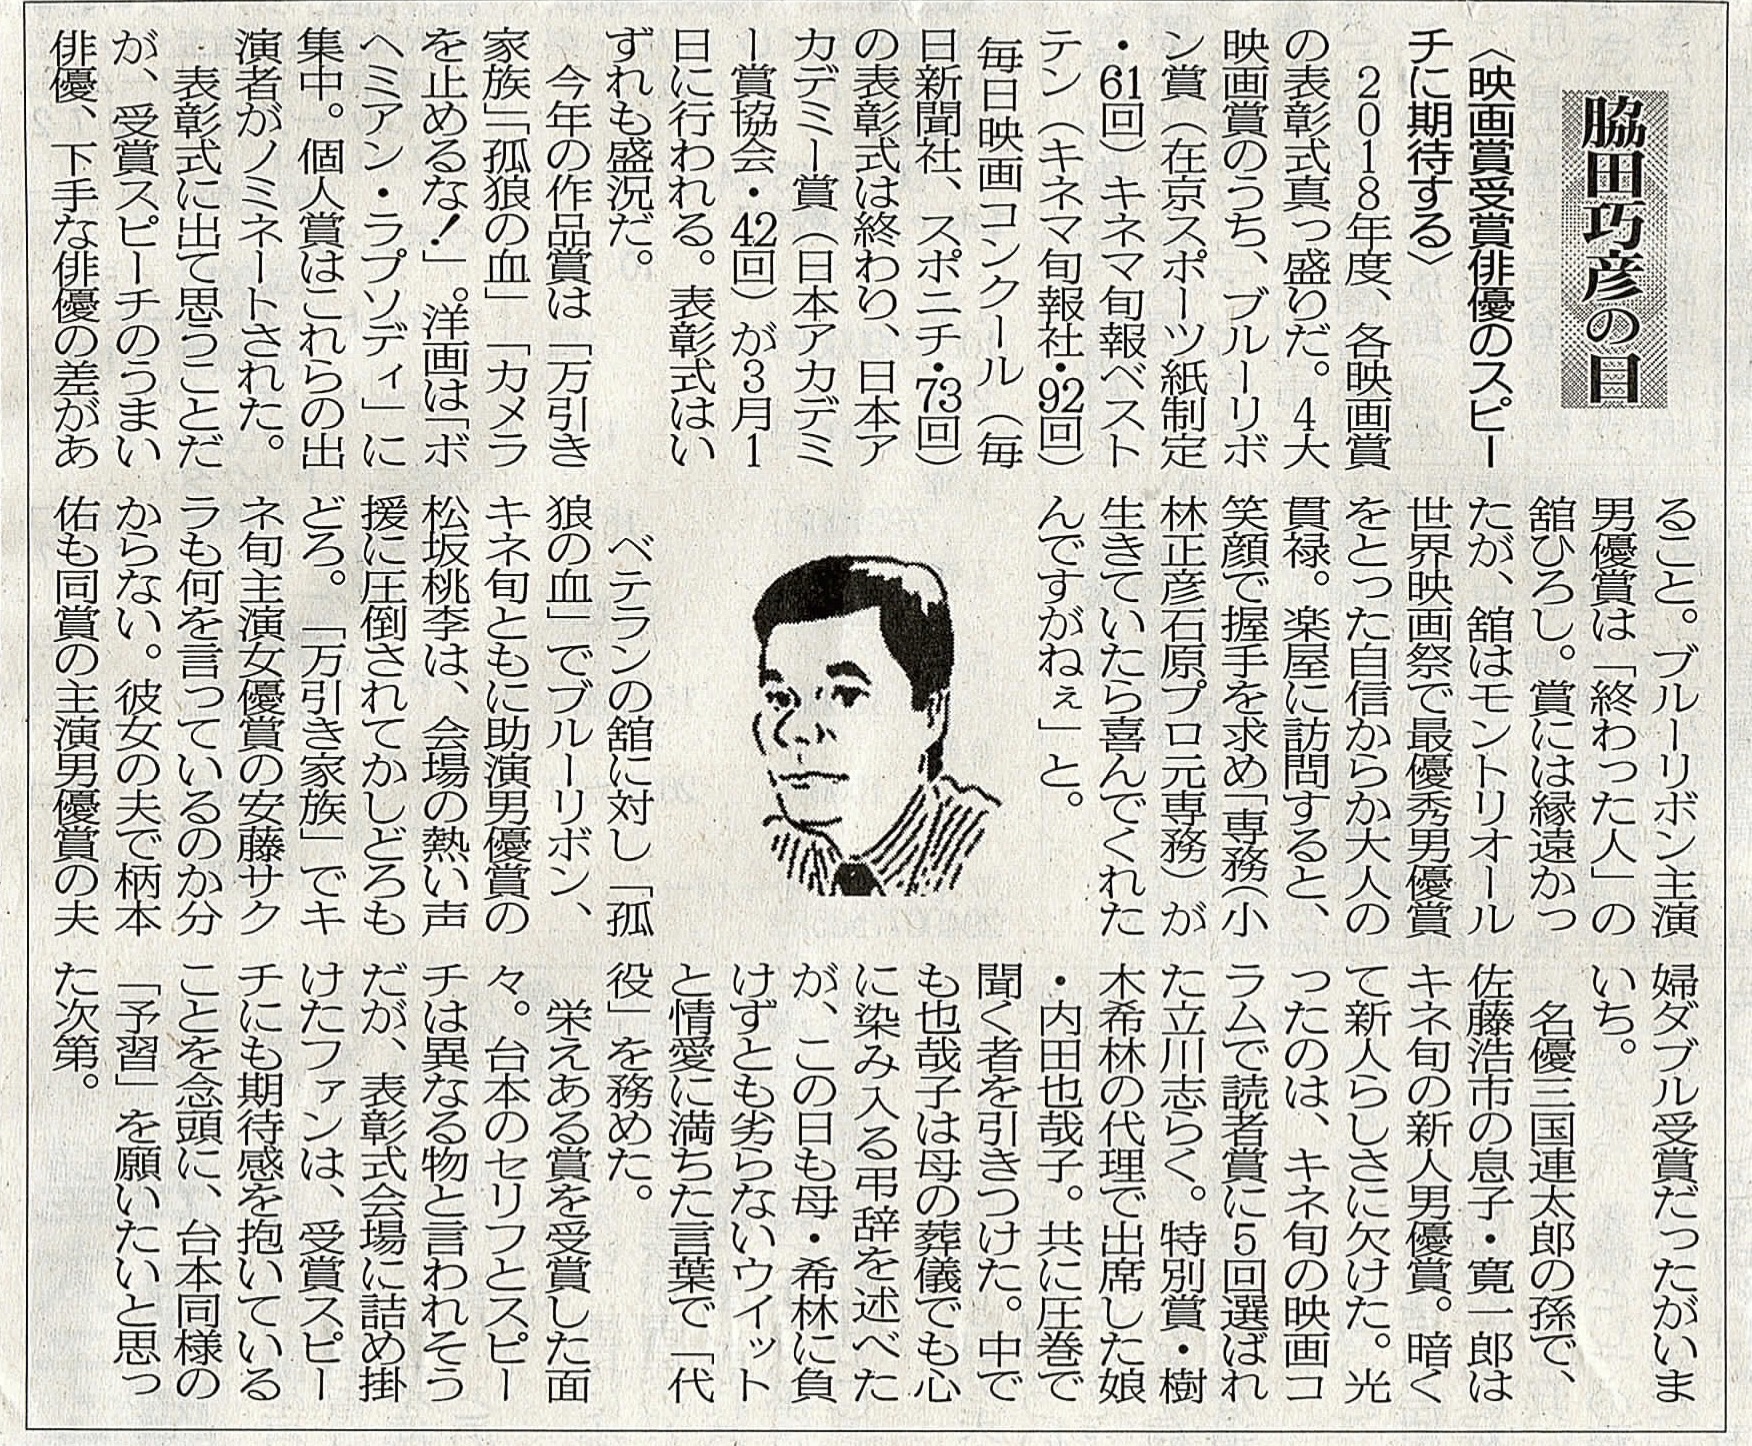 脇田巧彦の目
〈映画賞受賞俳優のスピー
チに期待する〉
２０１８年度、各映画賞
の表彰式真っ盛りだ。４大
映画賞のうち、ブルーリボ
ン賞（在京スポーツ紙制定
・61回）キネマ旬報ベスト
テン（キネマ旬報社・92回）
毎日映画コンクール（毎
日新聞社、スポニチ・73回）
の表彰式は終わり、日本ア
カデミー賞（日本アカデミ
ー賞協会・42回）が３月１
日に行われる。表彰式はい
ずれも盛況だ。
今年の作品賞は「万引き
家族」「孤狼の血」「カメラ
を止めるな！」。洋画は「ボ
ヘミアン・ラプソディ」に
集中。個人賞はこれらの出
演者がノミネートされた。
表彰式に出て思うことだ
が、受賞スピーチのうまい
俳優、下手な俳優の差があ
ること。ブルーリボン主演
男優賞は「終わった人」の
舘ひろし。賞には縁遠かっ
たが、舘はモントリオール
世界映画祭で最優秀男優賞
をとった自信からか大人の
貫禄。楽屋に訪問すると、
笑顔で握手を求め「専務（小
林正彦石原プロ元専務）が
生きていたら喜んでくれた
んですがねぇ」と。
ベテランの舘に対し「孤
狼の血」でブルーリボン、
キネ旬ともに助演男優賞の
松坂桃李は、会場の熱い声
援に圧倒されてかしどろも
どろ。「万引き家族」でキ
ネ旬主演女優賞の安藤サク
ラも何を言っているのか分
からない。彼女の夫で柄本
佑も同賞の主演男優賞の夫
婦ダブル受賞だったがいま
いち。
名優三国連太郎の孫で、
佐藤浩市の息子・寛一郎は
キネ旬の新人男優賞。暗く
て新人らしさに欠けた。光
ったのは、キネ旬の映画コ
ラムで読者賞に５回選ばれ
た立川志らく。特別賞・樹
木希林の代理で出席した娘
・内田也哉子。共に圧巻で
聞く者を引きつけた。中で
も也哉子は母の葬儀でも心
に染み入る弔辞を述べた
が、この日も母・希林に負
けずとも劣らないウイット
と情愛に満ちた言葉で「代
役」を務めた。
栄えある賞を受賞した面
々。台本のセリフとスピー
チは異なる物と言われそう
だが、表彰式会場に詰め掛
けたファンは、受賞スピー
チにも期待感を抱いている
ことを念頭に、台本同様の
「予習」を願いたいと思っ
た次第。